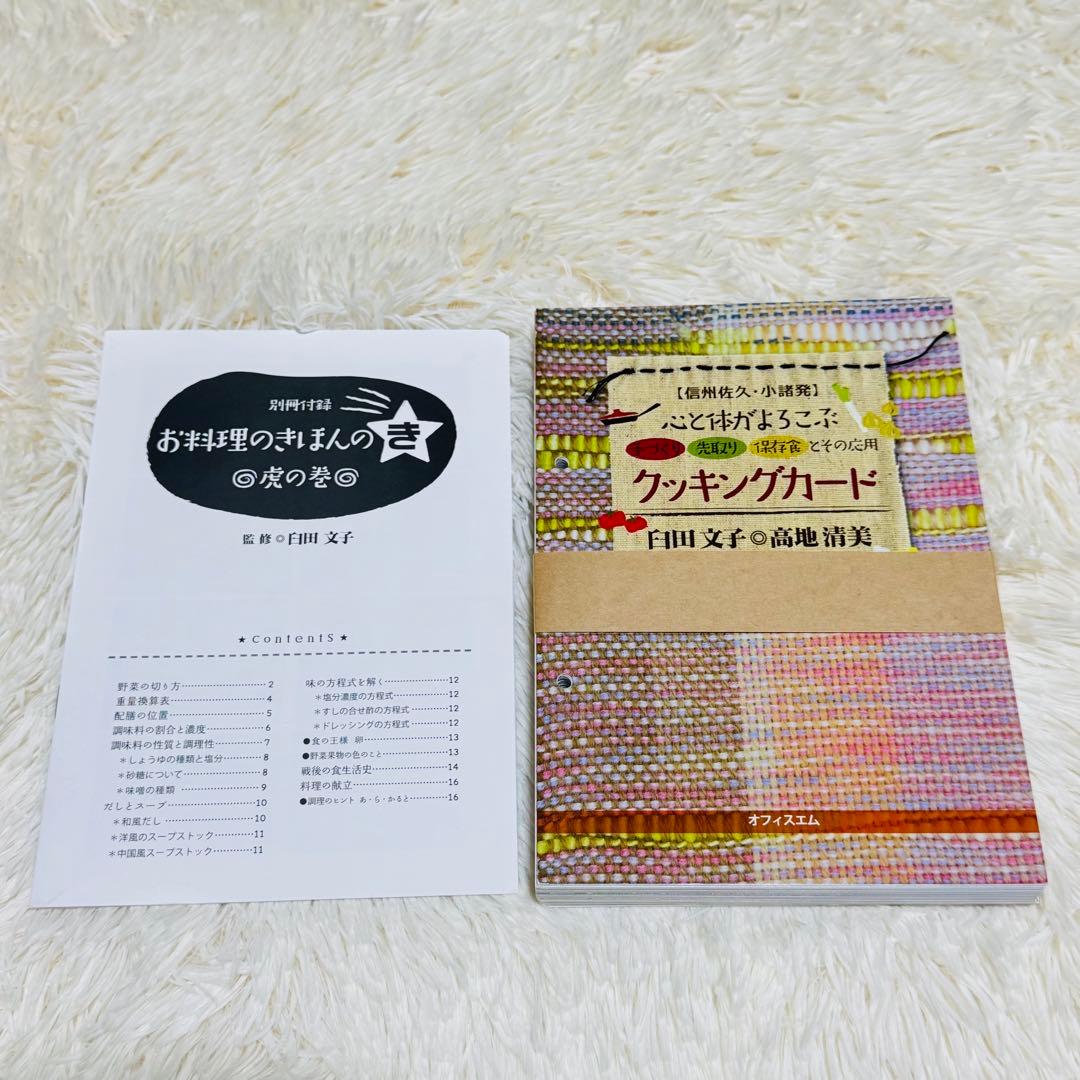 別冊付録
お料理のきほんのき
虎の巻
監修◎臼田 文子
★ContentS★
野菜の切り方……………………2
重量換算表………………………4
配膳の位置………………………5
調味料の割合と濃度……………6
調味料の性質と調理性…………7
＊しょうゆの種類と塩分………8
＊砂糖について…………………8
＊味噌の種類……………………9
だしとスープ……………………10
＊和風だし………………………10
＊洋風のスープストック………11
＊中国風スープストック………11
味の方程式を解く………………12
＊塩分濃度の方程式……………12
＊すしの合せ酢の方程式………12
＊ドレッシングの方程式………12
●食の王様 卵……………………13
●野菜果物の色のこと…………13
戦後の食生活史…………………14
料理の献立………………………16
●調理のヒント あ・ら・かると…………16
【信州佐久・小諸発】
心と体がよろこぶ
手づくり 先取り 保存食とその応用
クッキングカード
臼田 文子◎高地 清美
オフィスエム